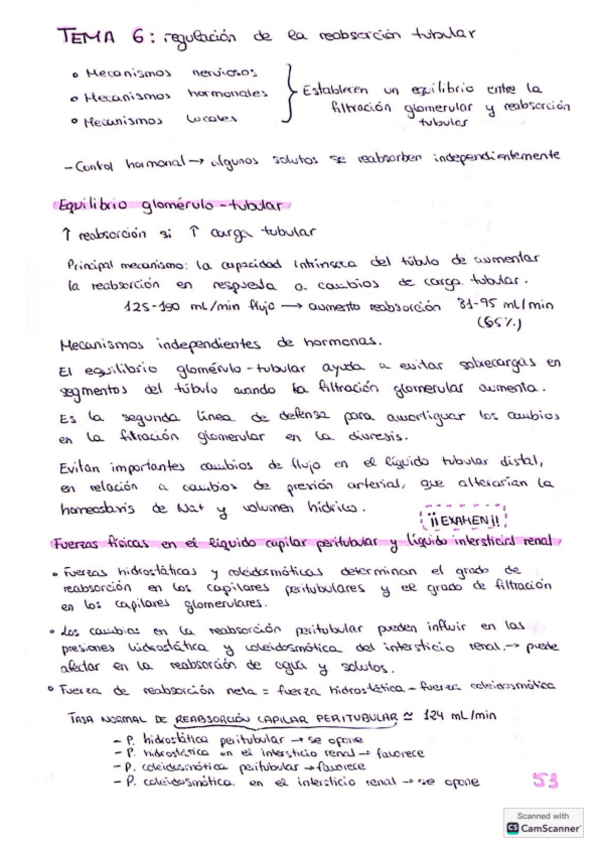 TEMA 6: regulación de la reabsorción tubular
• Mecanismos nerviosos
• Mecanismos hormonales
• Mecanismos locales
Establecen un equilibrio entre la
filtración glomerular y reabsorción
tubular
- Control hormonal → algunos solutos se reabsorben independientemente
Equilibrio glomérulo-tubular
↑ reabsorción si ↑ carga tubular
Principal mecanismo: la capacidad intrínseca del túbulo de aumentar
la reabsorción en respuesta a cambios de carga tubular.
125-150 mL/min flujo → aumento reabsorción 81-95 ml/min
(65%)
Mecanismos independientes de hormonas.
El equilibrio glomérulo-tubular ayuda a evitar sobrecargas en
segmentos del túbulo cuando la filtración glomerular aumenta.
Es la segunda línea de defensa para amortiguar los cambios
en la filtración glomerular en la diuresis.
Evitan importantes cambios de flujo en el líquido tubular distal,
en relación a cambios de presión arterial, que alterarían la
homeostasis de Na+ y volumen hídrico.
¡¡EXAMEN!!
Fuerzas físicas en el líquido capilar peritubular y líquido intersticial renal
• Fuerzas hidrostáticas y coloidosmóticas determinan el grado de
reabsorción en los capilares peritubulares y el grado de filtración
en los capilares glomerulares.
• Los cambios en la reabsorción peritubular pueden influir en las
presiones hidrostática y coloidosmótica del intersticio renal. → puede
afectar en la reabsorción de agua y solutos.
• Fuerza de reabsorción neta = fuerza hidrostática - fuerza coloidosmótica
TASA NORMAL DE REABSORCIÓN CAPILAR PERITUBULAR ≃ 124 mL/min
- P. hidrostática peritubular → se opone
- P. hidrostática en el intersticio renal → favorece
- P. coloidosmótica peritubular → favorece
- P. coloidosmótica en el intersticio renal → se opone
53
Scanned with
CS CamScanner